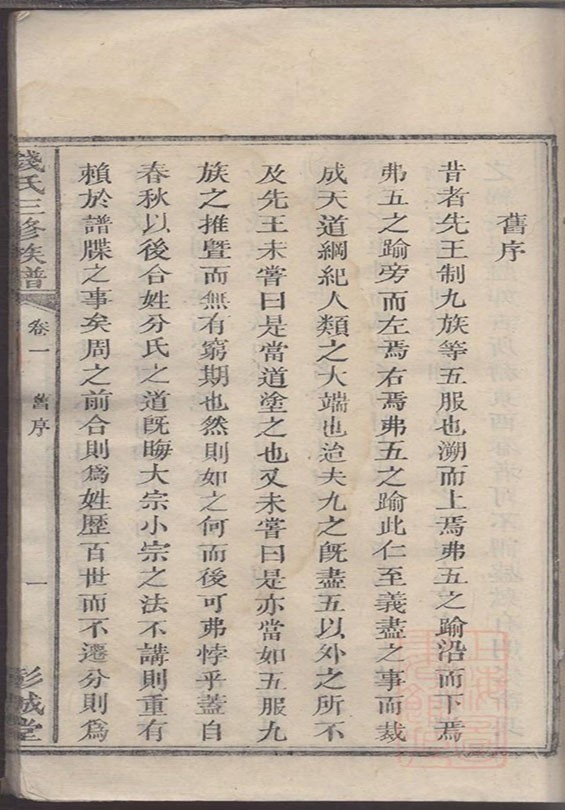 舊序
昔者先王制九族等五服也溯而上焉弗五之踰沿而下焉
弗五之踰旁而左焉右焉弗五之踰此仁至義盡之事而裁
成天道綱紀人類之大端也迨夫九之旣盡五以外之所不
及先王未嘗曰是當道塗之也又未嘗曰是亦當如五服九
族之推曁而無有窮期也然則如之何而後可弗悖乎蓋自
春秋以後合姓分氏之道旣晦大宗小宗之法不講則重有
賴於譜牒之事矣周之前合則爲姓歷百世而不遷分則爲
錢氏三修族譜
卷一
舊序
一
彭城堂